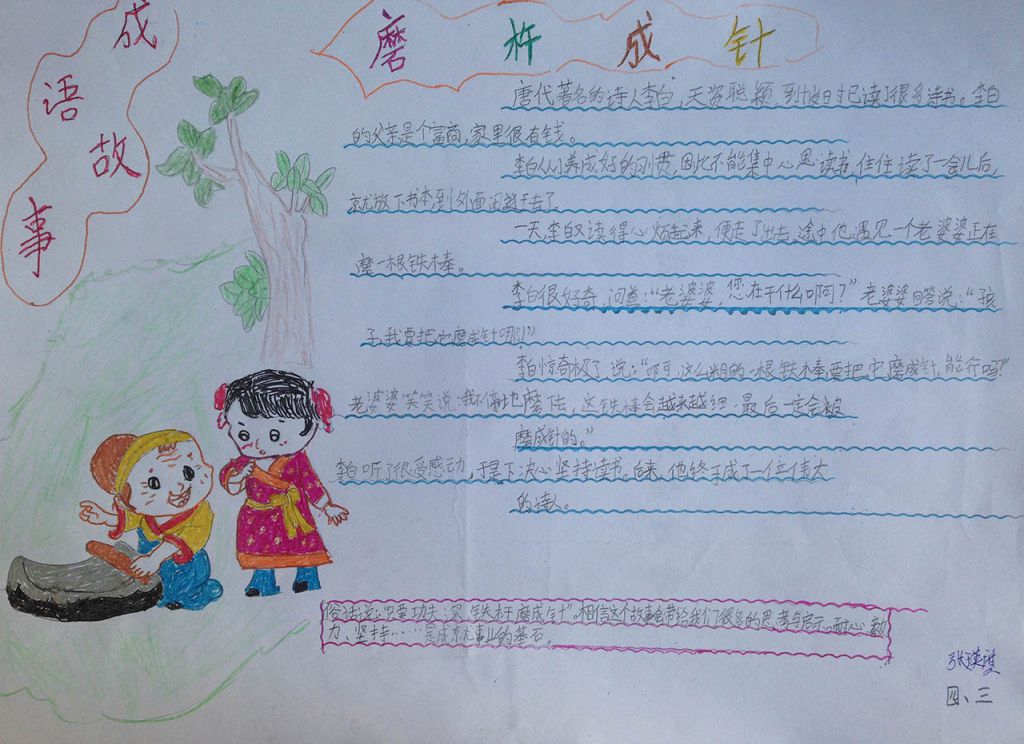 成语故事
磨杵成针
唐代著名的诗人李白,天资聪颖,到十岁时已读了很多诗书。李白
的父亲是个富商,家里很有钱。
李白从小养成好的习惯,因此不能集中心思读书,往往读了一会儿后,
就放下书本到外面闲逛去了
一天,李白又读得心烦起来,便走了出去,途中他遇见一个老婆婆正在
磨一根铁棒。
李白很好奇,问道:“老婆婆,您在干什么啊?”老婆婆回答说:“孩
子,我要把它磨成针哪!”
李白惊奇极了,说:“啊,这么粗的一根铁棒要把它磨成针,能行吗?”
老婆婆笑笑说:我不停地磨住,这铁棒会越来越细,最后一定会被
磨成针的。”
李白听了很受感动,于是下决心坚持读书。后来,他终于成了一位伟大
的诗人。
俗话说:“只要功夫深,铁杵磨成针”。相信这个故事会带给我们很多的思考与启示。耐心、毅
力、坚持……是成就事业的基石。
张瑛琪
四、三